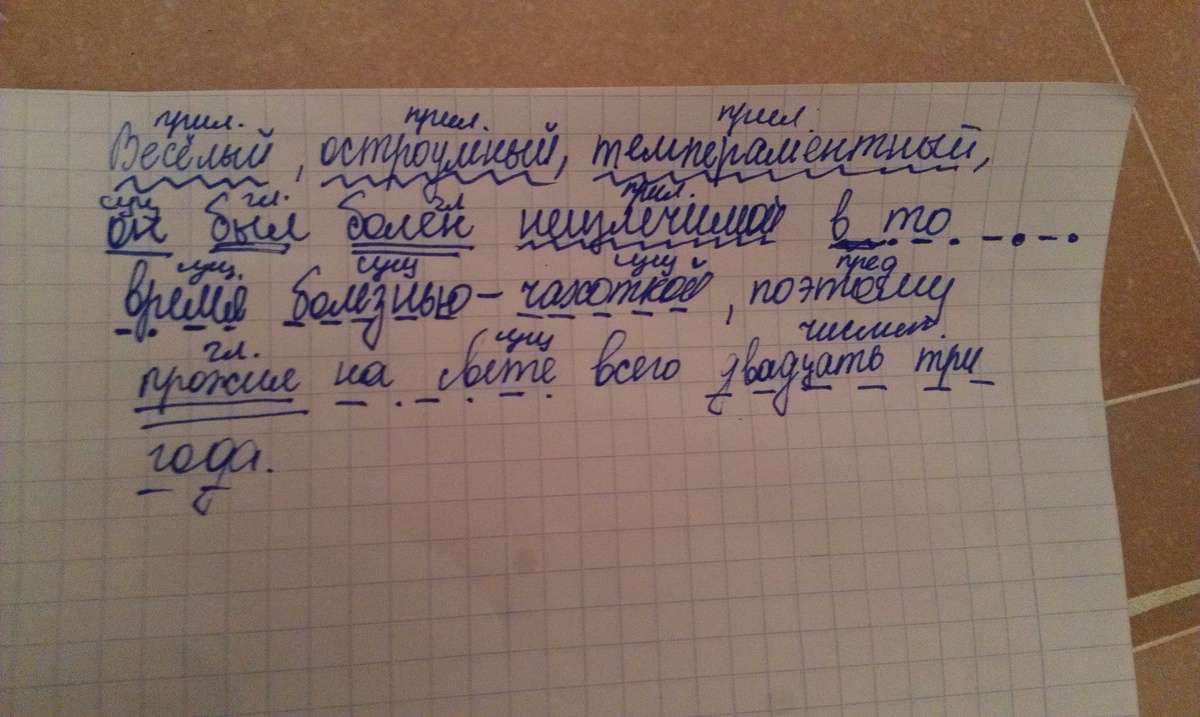 прил. прил. прил.
Весёлый, остроумный, темпераментный,
сущ гл. гл прил.
он был болен неизлечимой в то
сущ. сущ сущ пред
время болезнью – чахоткой, поэтому
гл. сущ числит.
прожил на свете всего двадцать три
года.